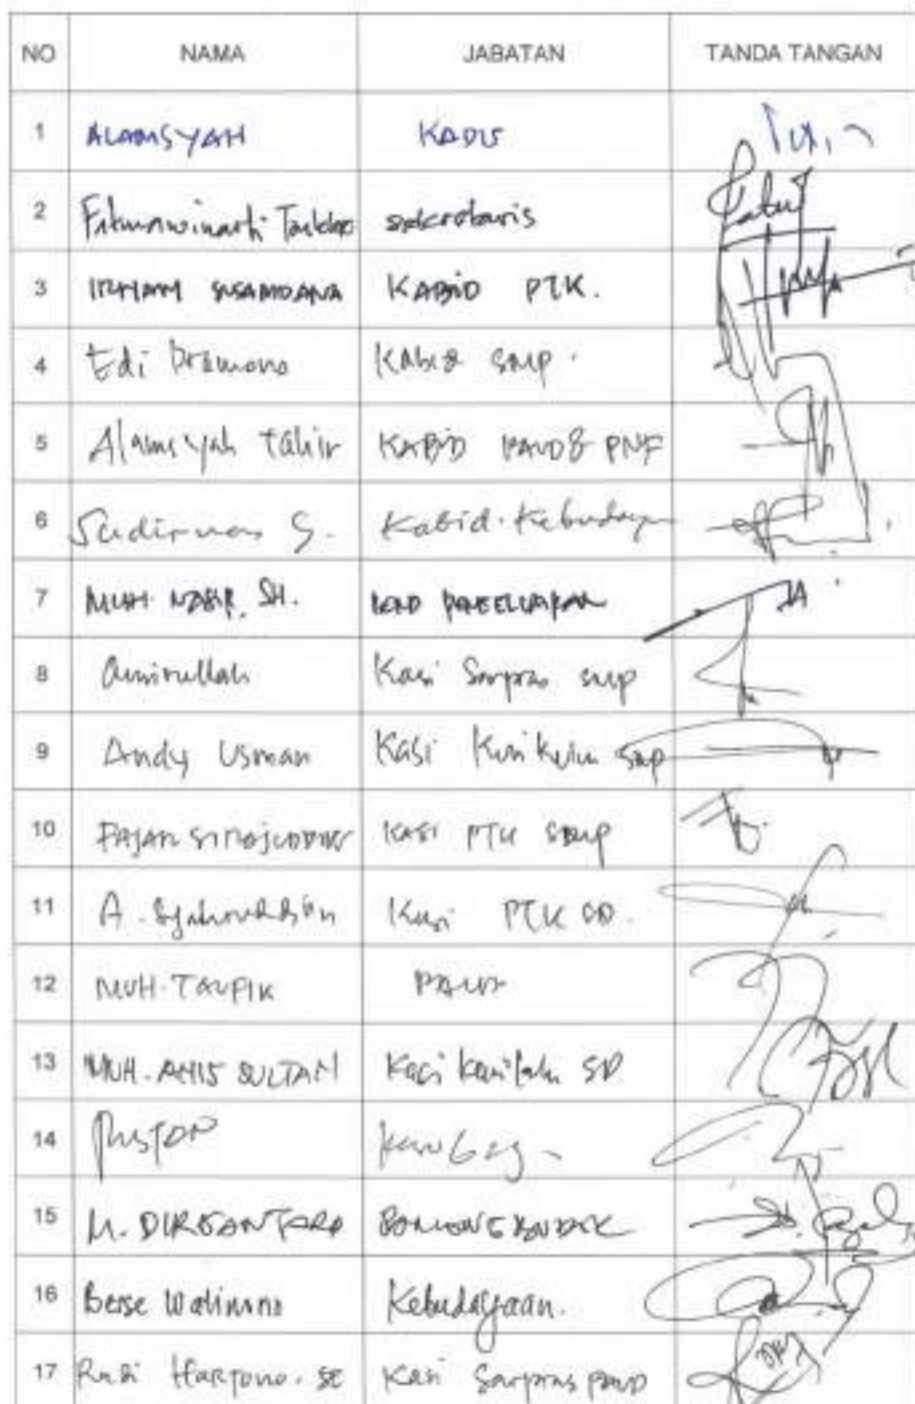 NO NAMA JABATAN TANDA TANGAN
1 ALAMSYAH KADIS
2 Fitmawinarti sekretaris
3 IRHAM SUSAMDANA KABID PTK.
4 Edi Pramono Kabid smp.
5 Alamsyah Tahir KABID PAUD & PNF
6 Sudirman S. Kabid. Kebudayaan
7 MUH. NASIR, SH.
8 Amirullah Kasi Sarpras smp
9 Andy Usman Kasi Kurikulum smp
10 FAJAR SIRAJUDDIN KASI PTK SMP
11 A. Syahruddin Kasi PTK SD.
12 MUH. TAUFIK PAUD
13 MUH. ANIS SULTAN Kasi SD
14
15 M. DIRGANTARA
16 Besse Walinono Kebudayaan.
17 Rudi Hartono. SE Kasi Sarpras paud